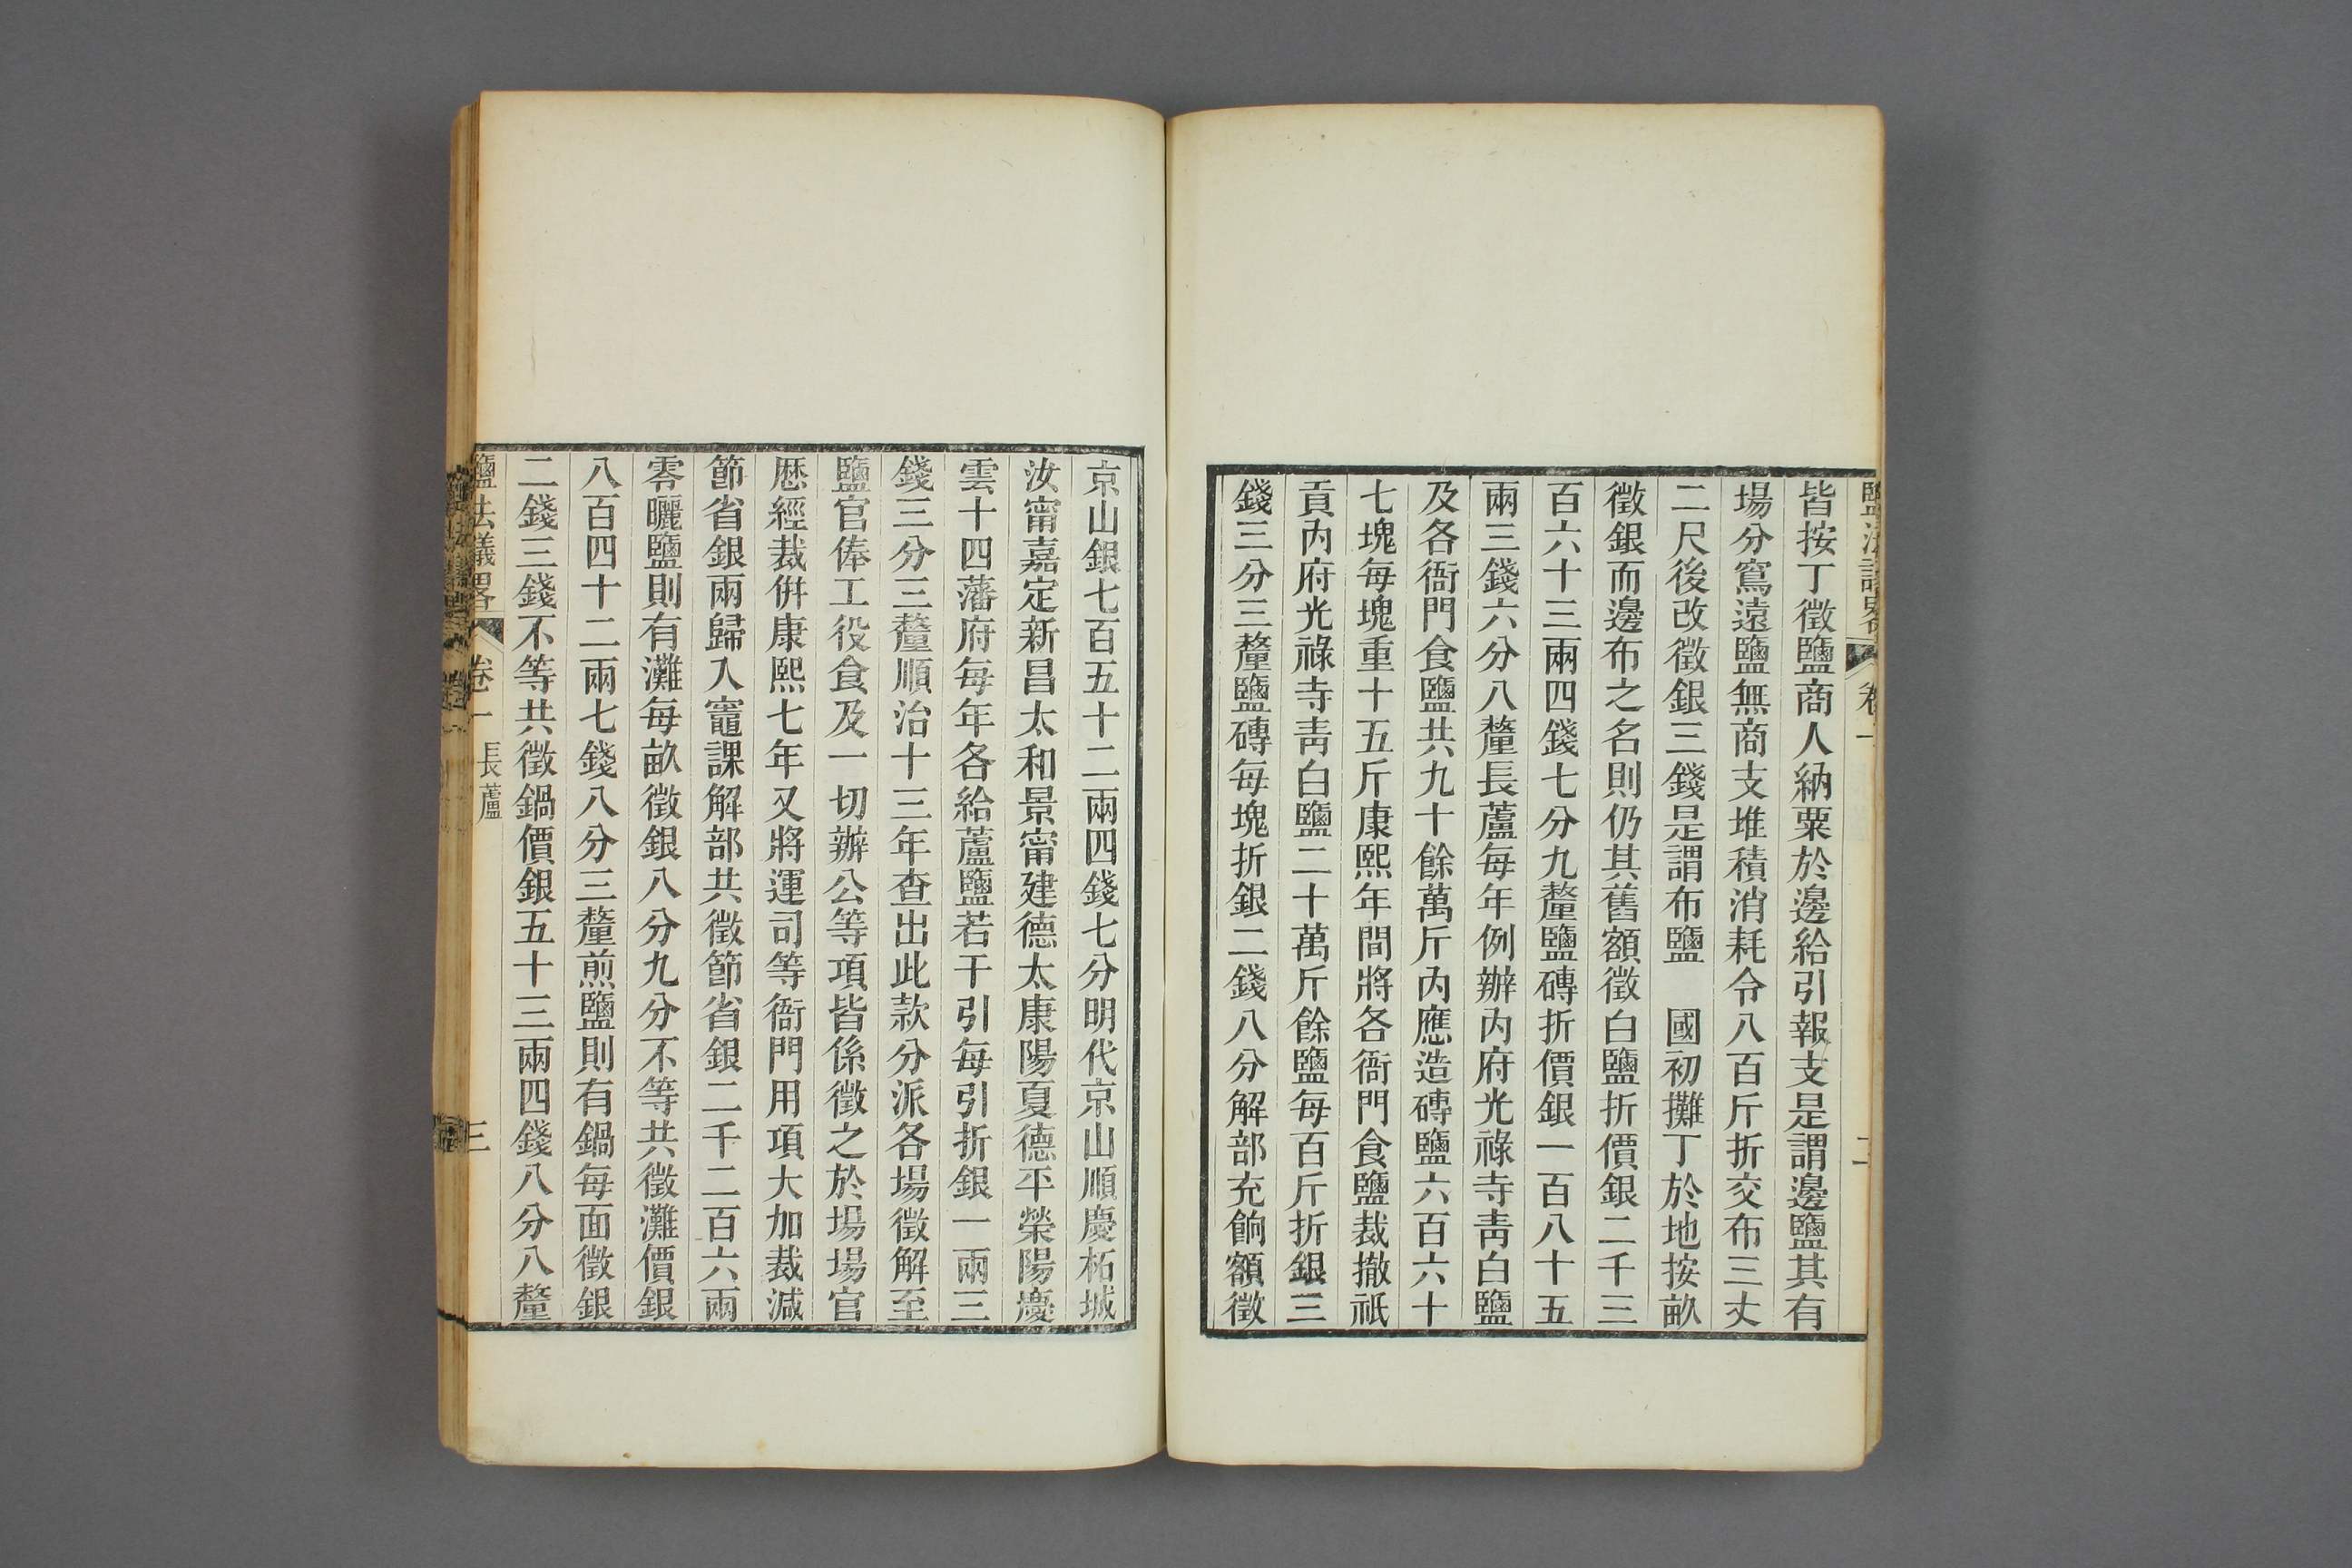 鹽法議畧 卷一 二
皆按丁徵鹽商人納粟於邊給引報支是謂邊鹽其有
場分窵遠鹽無商支堆積消耗令八百斤折交布三丈
二尺後改徵銀三錢是謂布鹽　國初攤丁於地按畝
徵銀而邊布之名則仍其舊額徵白鹽折價銀二千三
百六十三兩四錢七分九釐鹽磚折價銀一百八十五
兩三錢六分八釐長蘆每年例辦內府光祿寺青白鹽
及各衙門食鹽共九十餘萬斤內應造磚鹽六百六十
七塊每塊重十五斤康熙年間將各衙門食鹽裁撤祇
貢內府光祿寺青白鹽二十萬斤餘鹽每百斤折銀三
錢三分三釐鹽磚每塊折銀二錢八分解部充餉額徵
京山銀七百五十二兩四錢七分明代京山順慶柘城
汝甯嘉定新昌太和景甯建德太康陽夏德平榮陽慶
雲十四藩府每年各給蘆鹽若干引每引折銀一兩三
錢三分三釐順治十三年查出此款分派各場徵解至
鹽官俸工役食及一切辦公等項皆係徵之於場場官
歷經裁併康熙七年又將運司等衙門用項大加裁減
節省銀兩歸入竈課解部共徵節省銀二千二百六兩
零曬鹽則有灘每畝徵銀八分九分不等共徵灘價銀
八百四十二兩七錢八分三釐煎鹽則有鍋每面徵銀
二錢三錢不等共徵鍋價銀五十三兩四錢八分八釐
鹽法議畧 卷一 長蘆 三